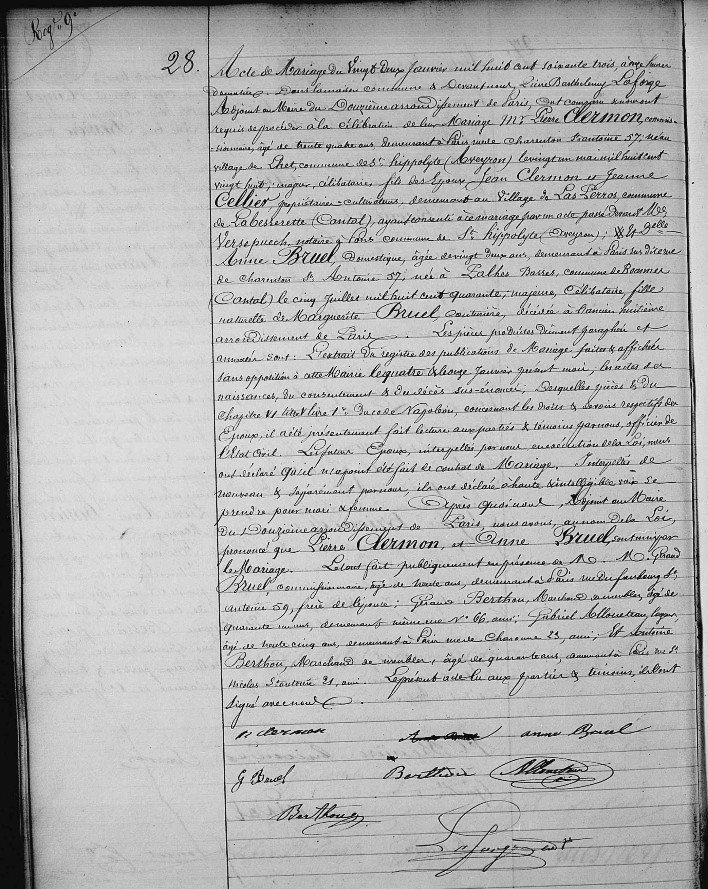 Reg. 9.
28.
Acte de Mariage du Vingt deux Janvier mil huit cent soixante trois, à onze heures
du matin. Dans la maison commune & Devant nous, Pierre Barthelemy Laforge
Adjoint au Maire du Douzième arrondissement de Paris, ont comparu & nous ont
requis de procéder à la célébration de leur Mariage Mr Pierre Clermon, commis-
-sionnaire, âgé de trente quatre ans, demeurant à Paris rue de Charenton St antoine 57, né au
village de commune de St hippolyte (Aveyron) le vingt un mai mil huit cent
vingt huit, majeur, Célibataire, fils des Epoux Jean Clermon et Jeanne
Cellier, propriétaires-cultivateurs, demeurant au Village de Las Perros, commune
de Labesserette (Cantal), ayant consenti à ce mariage par un acte passé devant Me
Versepuech, notaire à commune de St hippolyte (Aveyron); & Delle
Anne Bruel, Domestique, âgée de vingt deux ans, demeurant à Paris susdite rue
de Charenton St Antoine 57, née à Falhès Basses, commune de
(Cantal) le cinq Juillet mil huit cent quarante, majeure, Célibataire, fille
naturelle de Marguerite Bruel, couturière, décédée à l'ancien huitième
arrondissement de Paris. Les pièces produites dûment paraphées et
annexées sont: l'extrait du registre des publications de Mariage faites & affichées
sans opposition à cette Mairie les quatre & onze Janvier présent mois, les actes de
naissances, du consentement & du décès sus-énoncés; Desquelles pièces & du
chapitre VI titre V livre 1er du code Napoléon, concernant les droits & devoirs respectifs des
Epoux, il a été présentement fait lecture aux parties & témoins par nous, officier de
l'Etat Civil. Les futurs Epoux, interpellés par nous en exécution de la Loi, nous
ont déclaré qu'il n'a point été fait de contrat de Mariage. Interpellés de
nouveau & séparément par nous, ils ont déclaré à haute & intelligible voix se
prendre pour mari & femme. Après quoi nous, Adjoint au Maire
du Douzième arrondissement de Paris, nous avons, au nom de la Loi,
prononcé que Pierre Clermon, et Anne Bruel, sont unis par
le Mariage. Le tout fait publiquement en présence de M. M. Géraud
Bruel, commissionnaire, âgé de trente ans, demeurant à Paris rue du faubourg St
antoine 59, frère de l'épouse; Géraud Berthon, Marchand de meubles, âgé de
quarante ans, demeurant même rue No. 66, ami; Gabriel
âgé de trente cinq ans, demeurant à Paris rue de Charonne 23, ami; Et Antoine
Berthon, Marchand de meubles, âgé de quarante ans, demeurant à Paris rue St
nicolas St antoine 21, ami. Le présent acte lu aux parties & témoins, ils l'ont
signé avec nous.
P. clermon anne Bruel
G Bruel Berthon
Berthon
Laforge